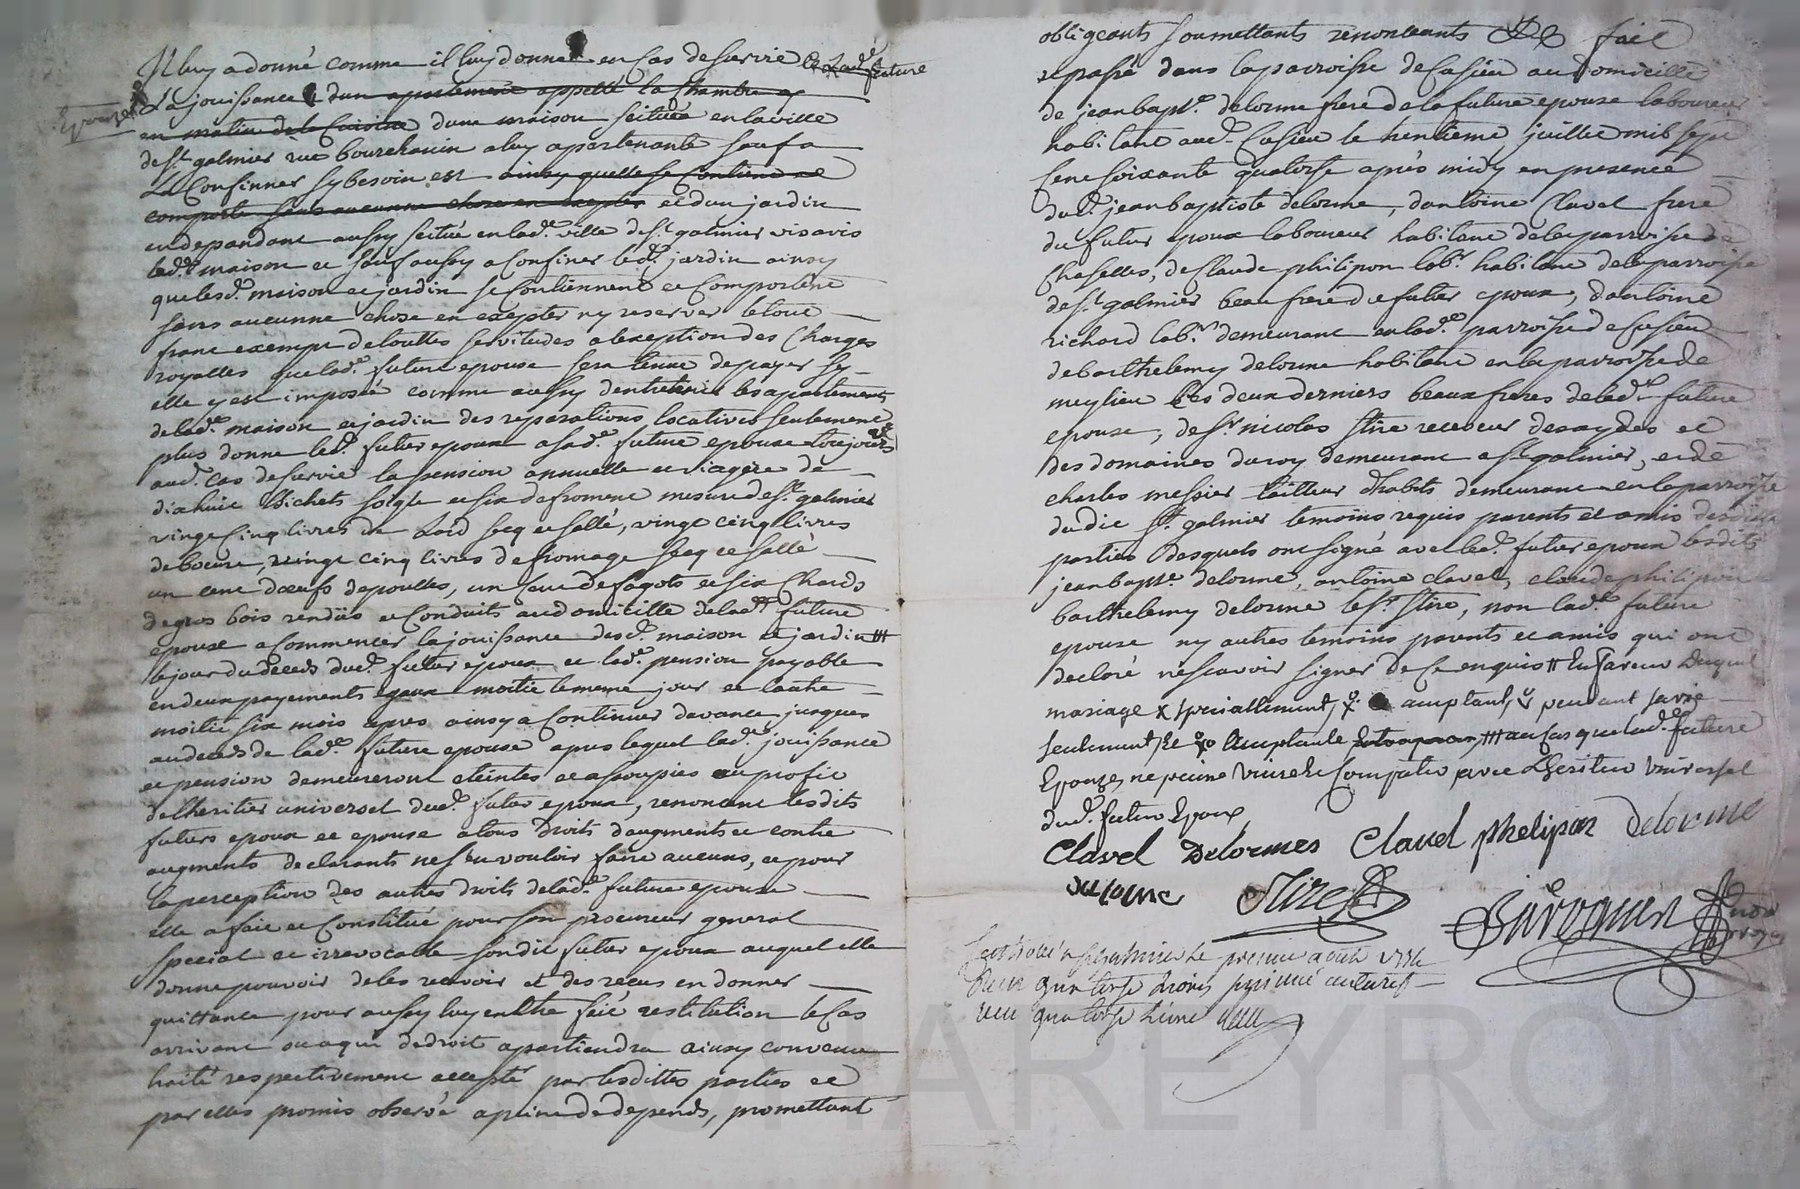 Il luy a donné comme il luy donne en cas de survie a lad.e future
Epouse
La jouissance d'un apartement appellé la chambre
en matin de la Cuisine d'une maison scituée en la ville
de St galmier rue bourchanin a luy apartenante sauf a
La Confinner sy besoin est ainsy quelle se Contient et
comporte sans aucunne chose en excepter et d'un jardin
endepandant aussy scitué en lad.e ville de St galmier vis avis
lad.e maison et sauf aussy a Confiner led. jardin ainsy
que lesd. maison et jardin se Contiennent et Comportent
sans aucunne chose en exepter ny reserver le tout
franc exempt de touttes servitudes a lexeption des Charges
royalles que lad.e future epouse sera tenue de payer sy
elle y est imposée comme aussy d'entretenir les apartements
de lad.e maison et jardin des reparations locatives seulement
plus donne led. futur epoux a sad.e future epouse toujours
aud. cas de survie la pension annuelle et viagere de
dixhuit Bichets seigle et six de froment mesure de St galmier
vingt cinq livres de Lard secq et sallé, vingt cinq livres
de beurre, vingt cinq livres de fromage secq et sallé
un cent d'oeufs de poulles, un cent de fagots et six Chards
de gros bois rendus et Conduits au domicille de lad.e future
epouse a Commencer la jouissance desd. maison et jardin #
le jour du deceds dud. futur epoux et lad.e pension payable
en deux payements egaux moitié le meme jour et lautre
moitié six mois apres ainsy a Continuer d'avance jusques
au deceds de lad.e future epouse apres lequel lad.e jouissance
et pension demeureront eteintes et assoupies au profit
de lheritier universel dud. futur epoux, renoncent lesdits
futurs epoux et epouse a tous droits d'augments et contre
augments declarants nes en vouloir faire aucuns, et pour
la perception des autres droits de lad.e future epouse
elle a fait et Constitué pour son procureur general
special et irrevocable sondit futur epoux auquel elle
donne pouvoir de les recevoir et des recus en donner
quittance pour aussy luy en estre fait restitution le Cas
arrivant ou a qui de droit apartiendra ainsy convenu
traité respectivement accepté par lesdittes parties et
par elles promis observé a peine de depends, promettant
obligeants soumettants renonceants &c fait
et passé dans la parroisse de Cusieu au domicille
de jean bapt.e delorme frere de la future epouse laboureur
habitant aud. Cusieu le trentieme juillet mil sept
Cent soixante quatorse après midy en presence
dud. jean baptiste delorme, d'antoine Clavel frere
du futur epoux laboureur habitant de la parroisse de
Chaselles, de Claude philipon lab.r habitant de la parroisse
de St galmier beau frere de futur epoux, d'antoine
richard lab.r demeurant en lad.e parroisse de Cusieu
de barthelemy delorme habitant en la parroisse de
meylieu les deux derniers beaux freres de lad.e future
epouse, de Sr nicolas Stire receveur des aydes et
des domaines du roy demeurant a St galmier, et de
charles messier tailleur d'habits demeurant en la parroisse
du dit St galmier temoins requis parents et amis desdittes
parties Desquels ont signé avec led. futur epoux lesdits
jean bapt.e delorme, antoine clavel, claude philipon
barthelemy delorme le Sr Stire, non lad.e future
epouse ny autres temoins parents et amis qui ont
declaré ne scavoir signer de Ce enquis # En faveur Duquel
mariage x specialement, amptant, pendant sa vie
seulement, et Acceptante # au Cas que lad.e future
Epouze, ne puine vivre En Compatie avec Lheritier Universel
dud. futur Epoux
Clavel Delormes Clavel phelipon Delorme
delorme Stire
quatorse